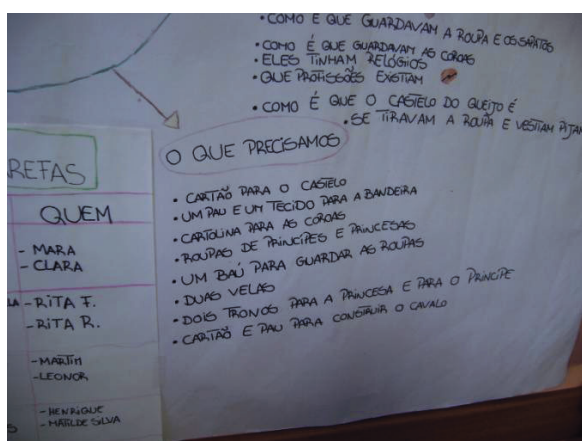 • COMO É QUE GUARDAVAM A ROUPA E OS SAPATOS
• COMO É QUE GUARDAVAM AS COROAS
• ELES TINHAM RELÓGIOS
• QUE PROFISSÕES EXISTIAM
• COMO É QUE O CASTELO DO QUEIJO É
• SE TIRAVAM A ROUPA E VESTIAM PIJAM
O QUE PRECISAMOS
• CARTÃO PARA O CASTELO
• UM PAU E UM TECIDO PARA A BANDEIRA
• CARTOLINA PARA AS COROAS
• ROUPAS DE PRINCIPES E PRINCESAS
• UM BAÚ PARA GUARDAR AS ROUPAS
• DUAS VELAS
• DOIS TRONOS PARA A PRINCESA E PARA O PRINCIPE
• CARTÃO E PAU PARA CONSTRUIR O CAVALO
REFAS
QUEM
- MARA
- CLARA
- RITA F.
- RITA R.
- MARTIM
- LEONOR
- HENRIQUE
- MATILDE SILVA